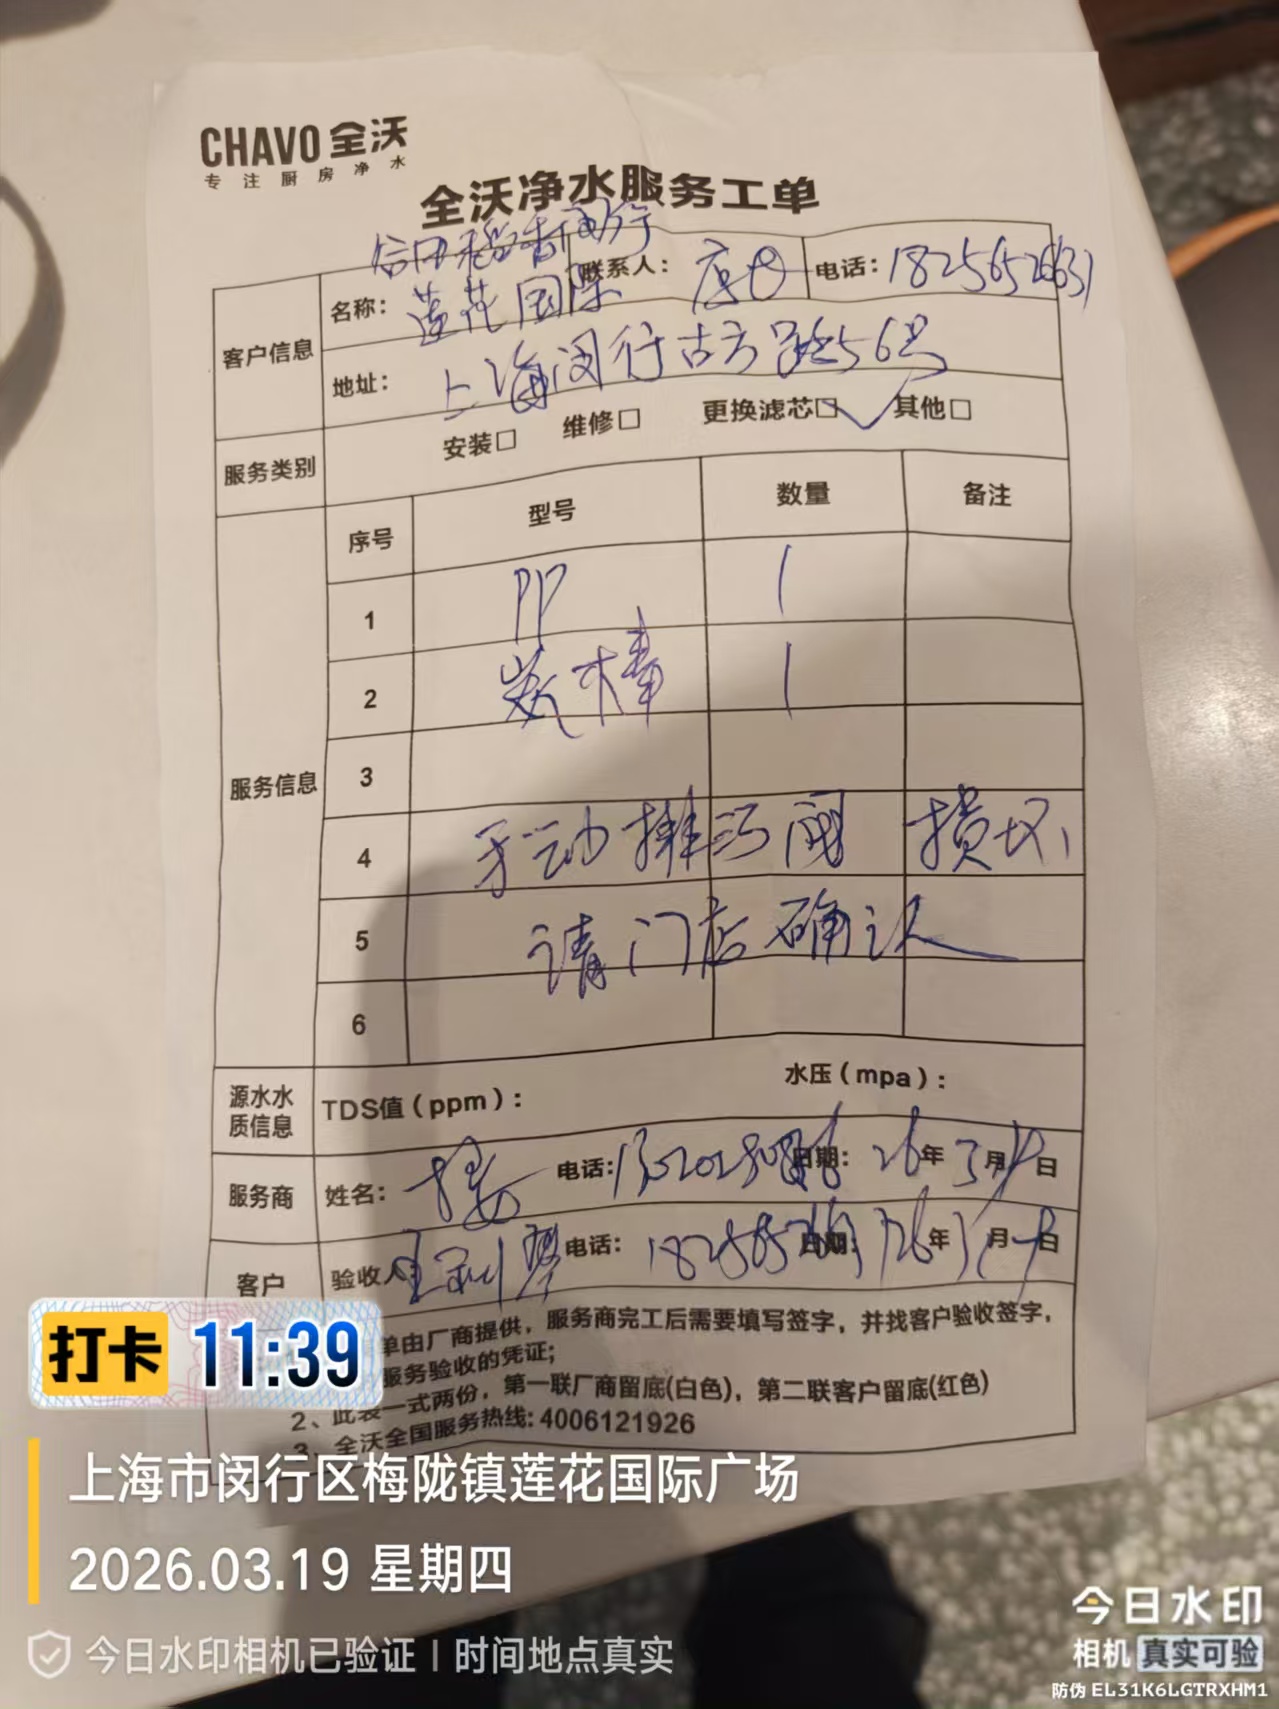 CHAVO 全沃
专注厨房净水
全沃净水服务工单
稻香闵行
客户信息 名称: 莲花国际 联系人: 电话: 18256526631
地址: 上海闵行古方路56号
服务类别 安装□ 维修□ 更换滤芯☑ 其他□
服务信息 序号 型号 数量 备注
1 PP 1
2 炭棒 1
3
4 手动排污阀 损坏
5 请门店确认
6
源水水质信息 TDS值(ppm): 水压(mpa):
服务商 姓名: 电话: 日期: 26年3月19日
客户 验收人 电话: 日期: 26年3月19日
单由厂商提供,服务商完工后需要填写签字,并找客户验收签字,
服务验收的凭证;
2、此表一式两份,第一联厂商留底(白色),第二联客户留底(红色)
3、全沃全国服务热线:4006121926
打卡 11:39
上海市闵行区梅陇镇莲花国际广场
2026.03.19 星期四
今日水印相机已验证 | 时间地点真实
今日水印
相机 真实可验
防伪 EL31K6LGTRXHM1